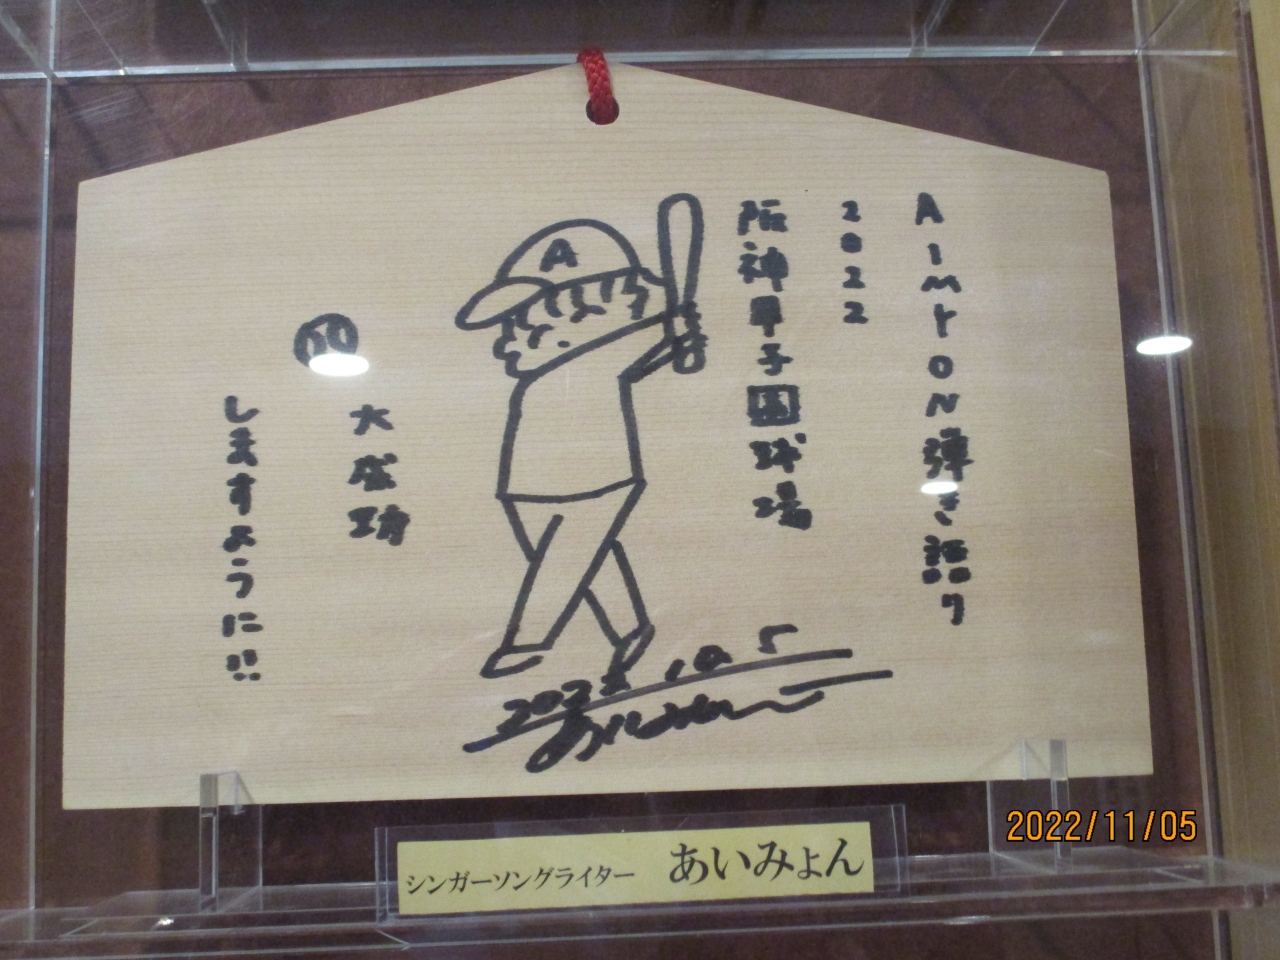 AIMYON弾き語り
2022
阪神甲子園球場
A
大成功
しますように!!
2022.10.5
あいみょん
シンガーソングライター あいみょん
2022/11/05